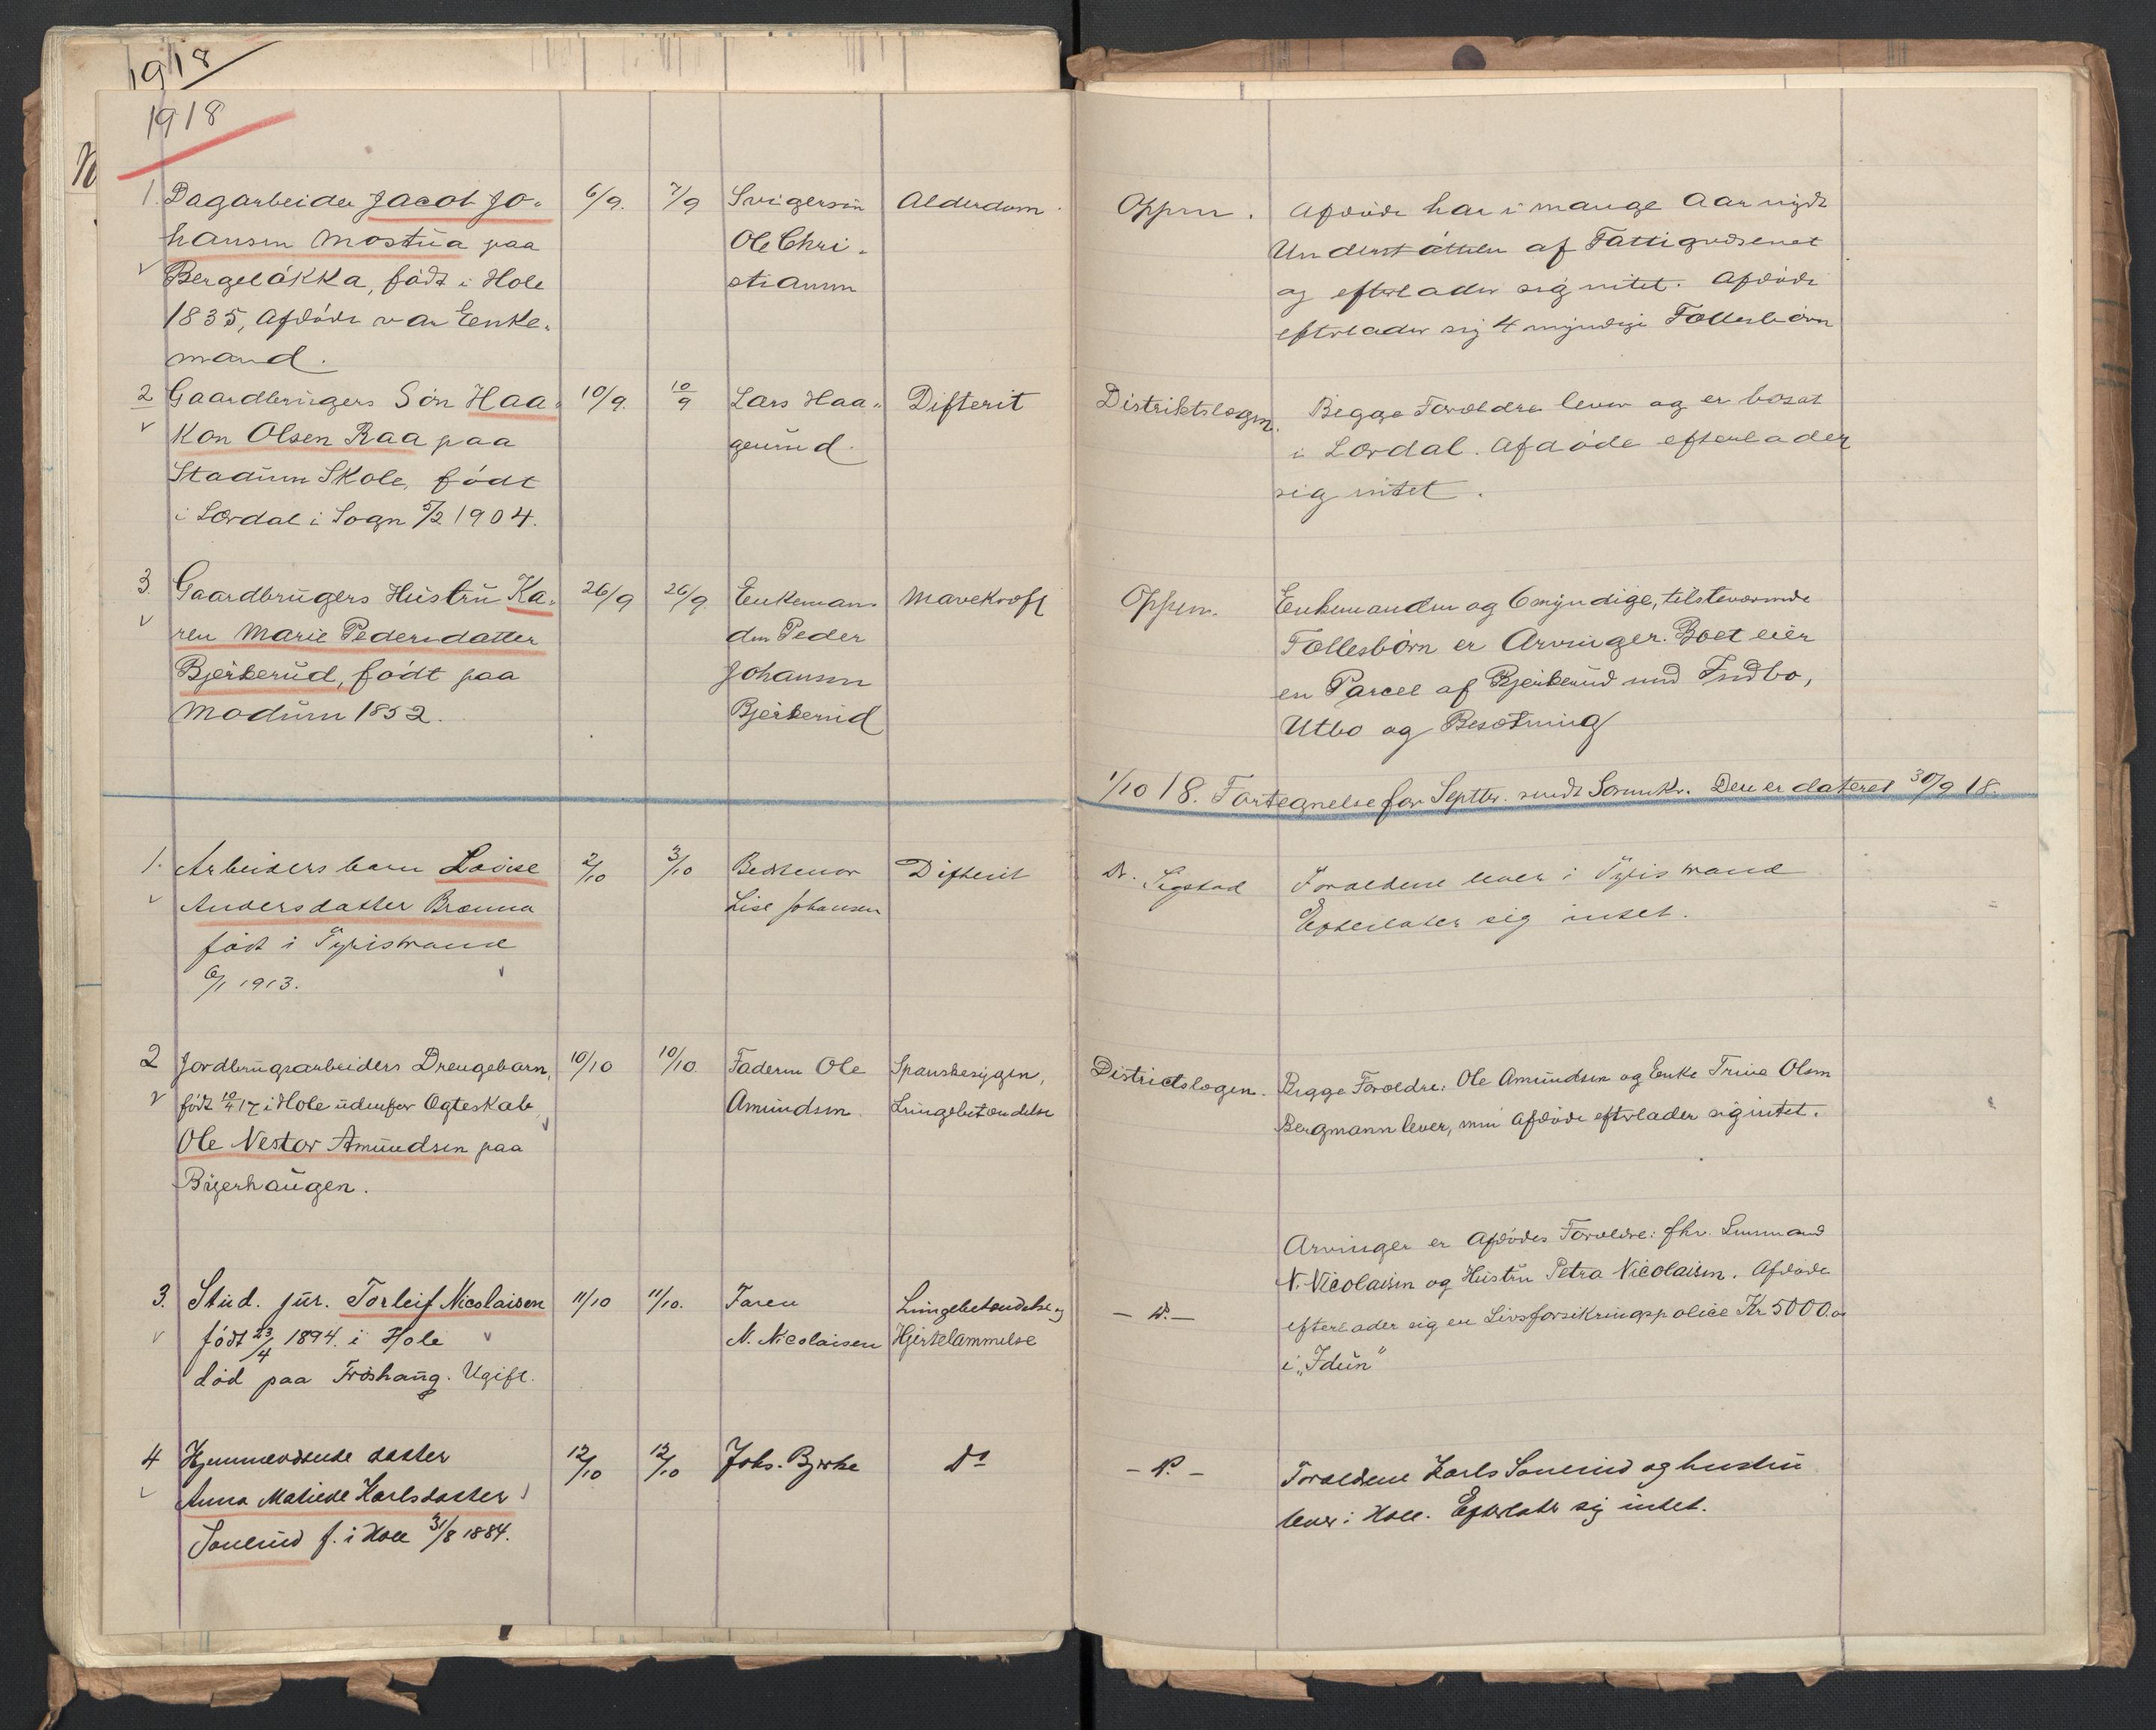 1918
1918
1. Dagarbeider Jacob Jo- 6/9. 7/9 Svigersøn Alderdom. Oppm. Afdøde har i mange Aar nydt
hansen Mostua paa Ole Chri- Understøttelse af Fattigvæsenet
Bergeløkka, født i Hole stiansen og efterlader sig intet. Afdøde
1835, Afdøde var Enke- efterlader sig 4 myndige Fællesbørn
mand.
2 Gaardbrugers Søn Haa- 10/9. 10/9 Lars Haa- Difterit Distriktslægen. Begge Forældre lever og er bosat
kon Olsen Raa paa gerud. i Lærdal. Afdøde efterlader
Stadum Skole, født sig intet.
i Lærdal i Sogn 5/2 1904.
3. Gaardbrugers Hustru Ka- 26/9 26/9. Enkeman- Mavekræft Oppm. Enkemanden og 6 myndige, tilsteværende
ren Marie Pedersdatter den Peder Fællesbørn er Arvinger. Boet eier
Bjerkerud, født paa Johansen en Parcel af Bjerkerud med Indbo,
Modum 1852. Bjerkerud Utbo og Besætning
1/10 18. Fortegnelse for Septbr. sendt Sorenskr. Den er dateret 30/9 18.
1. Arbeiders barn Lovise 2/10 3/10 Bedstemor Difterit Dr. Sigstad Forældrene lever i Tyristrand
Andersdatter Brænna Lise Johansen Efterlater sig intet.
født i Tyristrand
6/1 1913.
2 Jordbrugsarbeiders Drengebarn, 10/10 10/10 Faderen Ole Spanskesygen, Districtslægen. Begge Forældre: Ole Amundsen og Enke Trine Olsen
født 10/4 17 i Hole udenfor Ægteskab Amundsen. Lungebetændelse Bergmann lever, men Afdøde efterlader sig intet.
Ole Nestor Amundsen paa
Bigerhaugen.
Arvinger er Afdødes Forældre: fhv. Lensmand
N. Nicolaisen og Hustru Petra Nicolaisen. Afdøde
3. Stud. jur. Torleif Nicolaisen 11/10 11/10. Faren Lungebetændelse og - D. - efterlader sig en Livsforsikringspolice Kr 5000.00
født 23/4 1894. i Hole N. Nicolaisen Hjertelammelse i "Idun"
død paa Frøshaug. Ugift.
4 Hjemmeværende datter 12/10 12/10 Johs. Bjerke Do - D. - Forældrene Karls Sonerud og hustru
Anna Matilde Karlsdatter lever i Hole. Efterlater sig intet.
Sonerud f. i Hole 31/8 1884.